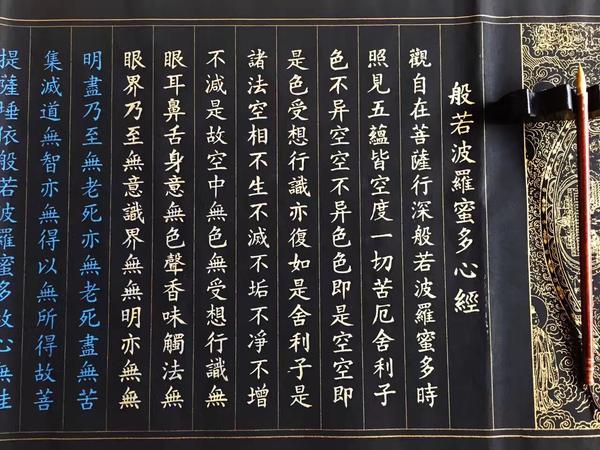 般若波羅蜜多心經
觀自在菩薩行深般若波羅蜜多時
照見五蘊皆空度一切苦厄舍利子
色不异空空不异色色即是空空即
是色受想行識亦復如是舍利子是
諸法空相不生不滅不垢不凈不增
不減是故空中無色無受想行識無
眼耳鼻舌身意無色聲香味觸法無
眼界乃至無意識界無無明亦無無
明盡乃至無老死亦無老死盡無苦
集滅道無智亦無得以無所得故菩
提薩埵依般若波羅蜜多故心無